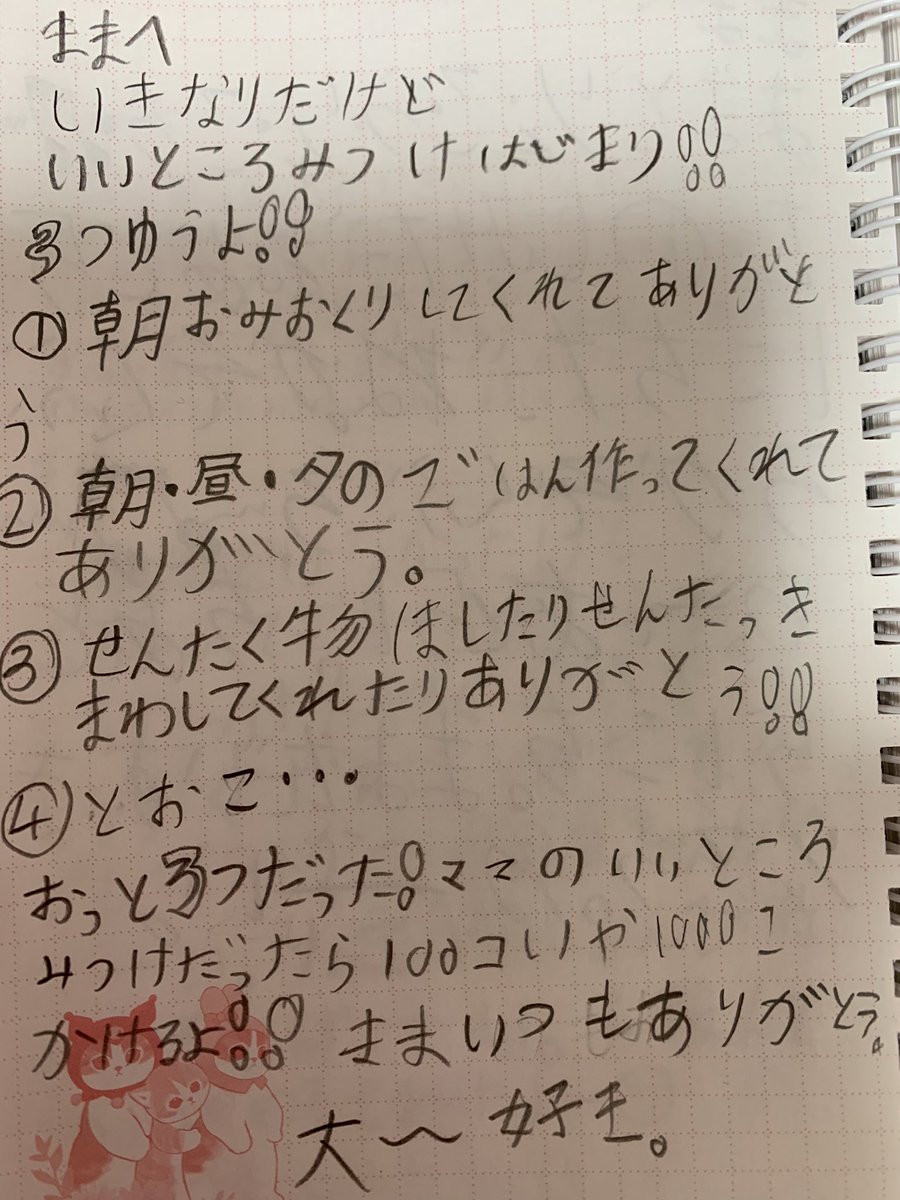 ままへ
いきなりだけど
いいところみつけはじまり!!
3つゆうよ!!
① 朝おみおくりしてくれてありがと
う
② 朝・昼・夕のごはん作ってくれて
ありがとう。
③ せんたく物ほしたりせんたっき
まわしてくれたりありがとう!!
④ とおこ・・・
おっと3つだった!ママのいいところ
みつけだったら100コいや1000こ
かけるよ!!ままいつもありがとう。
大〜好き。